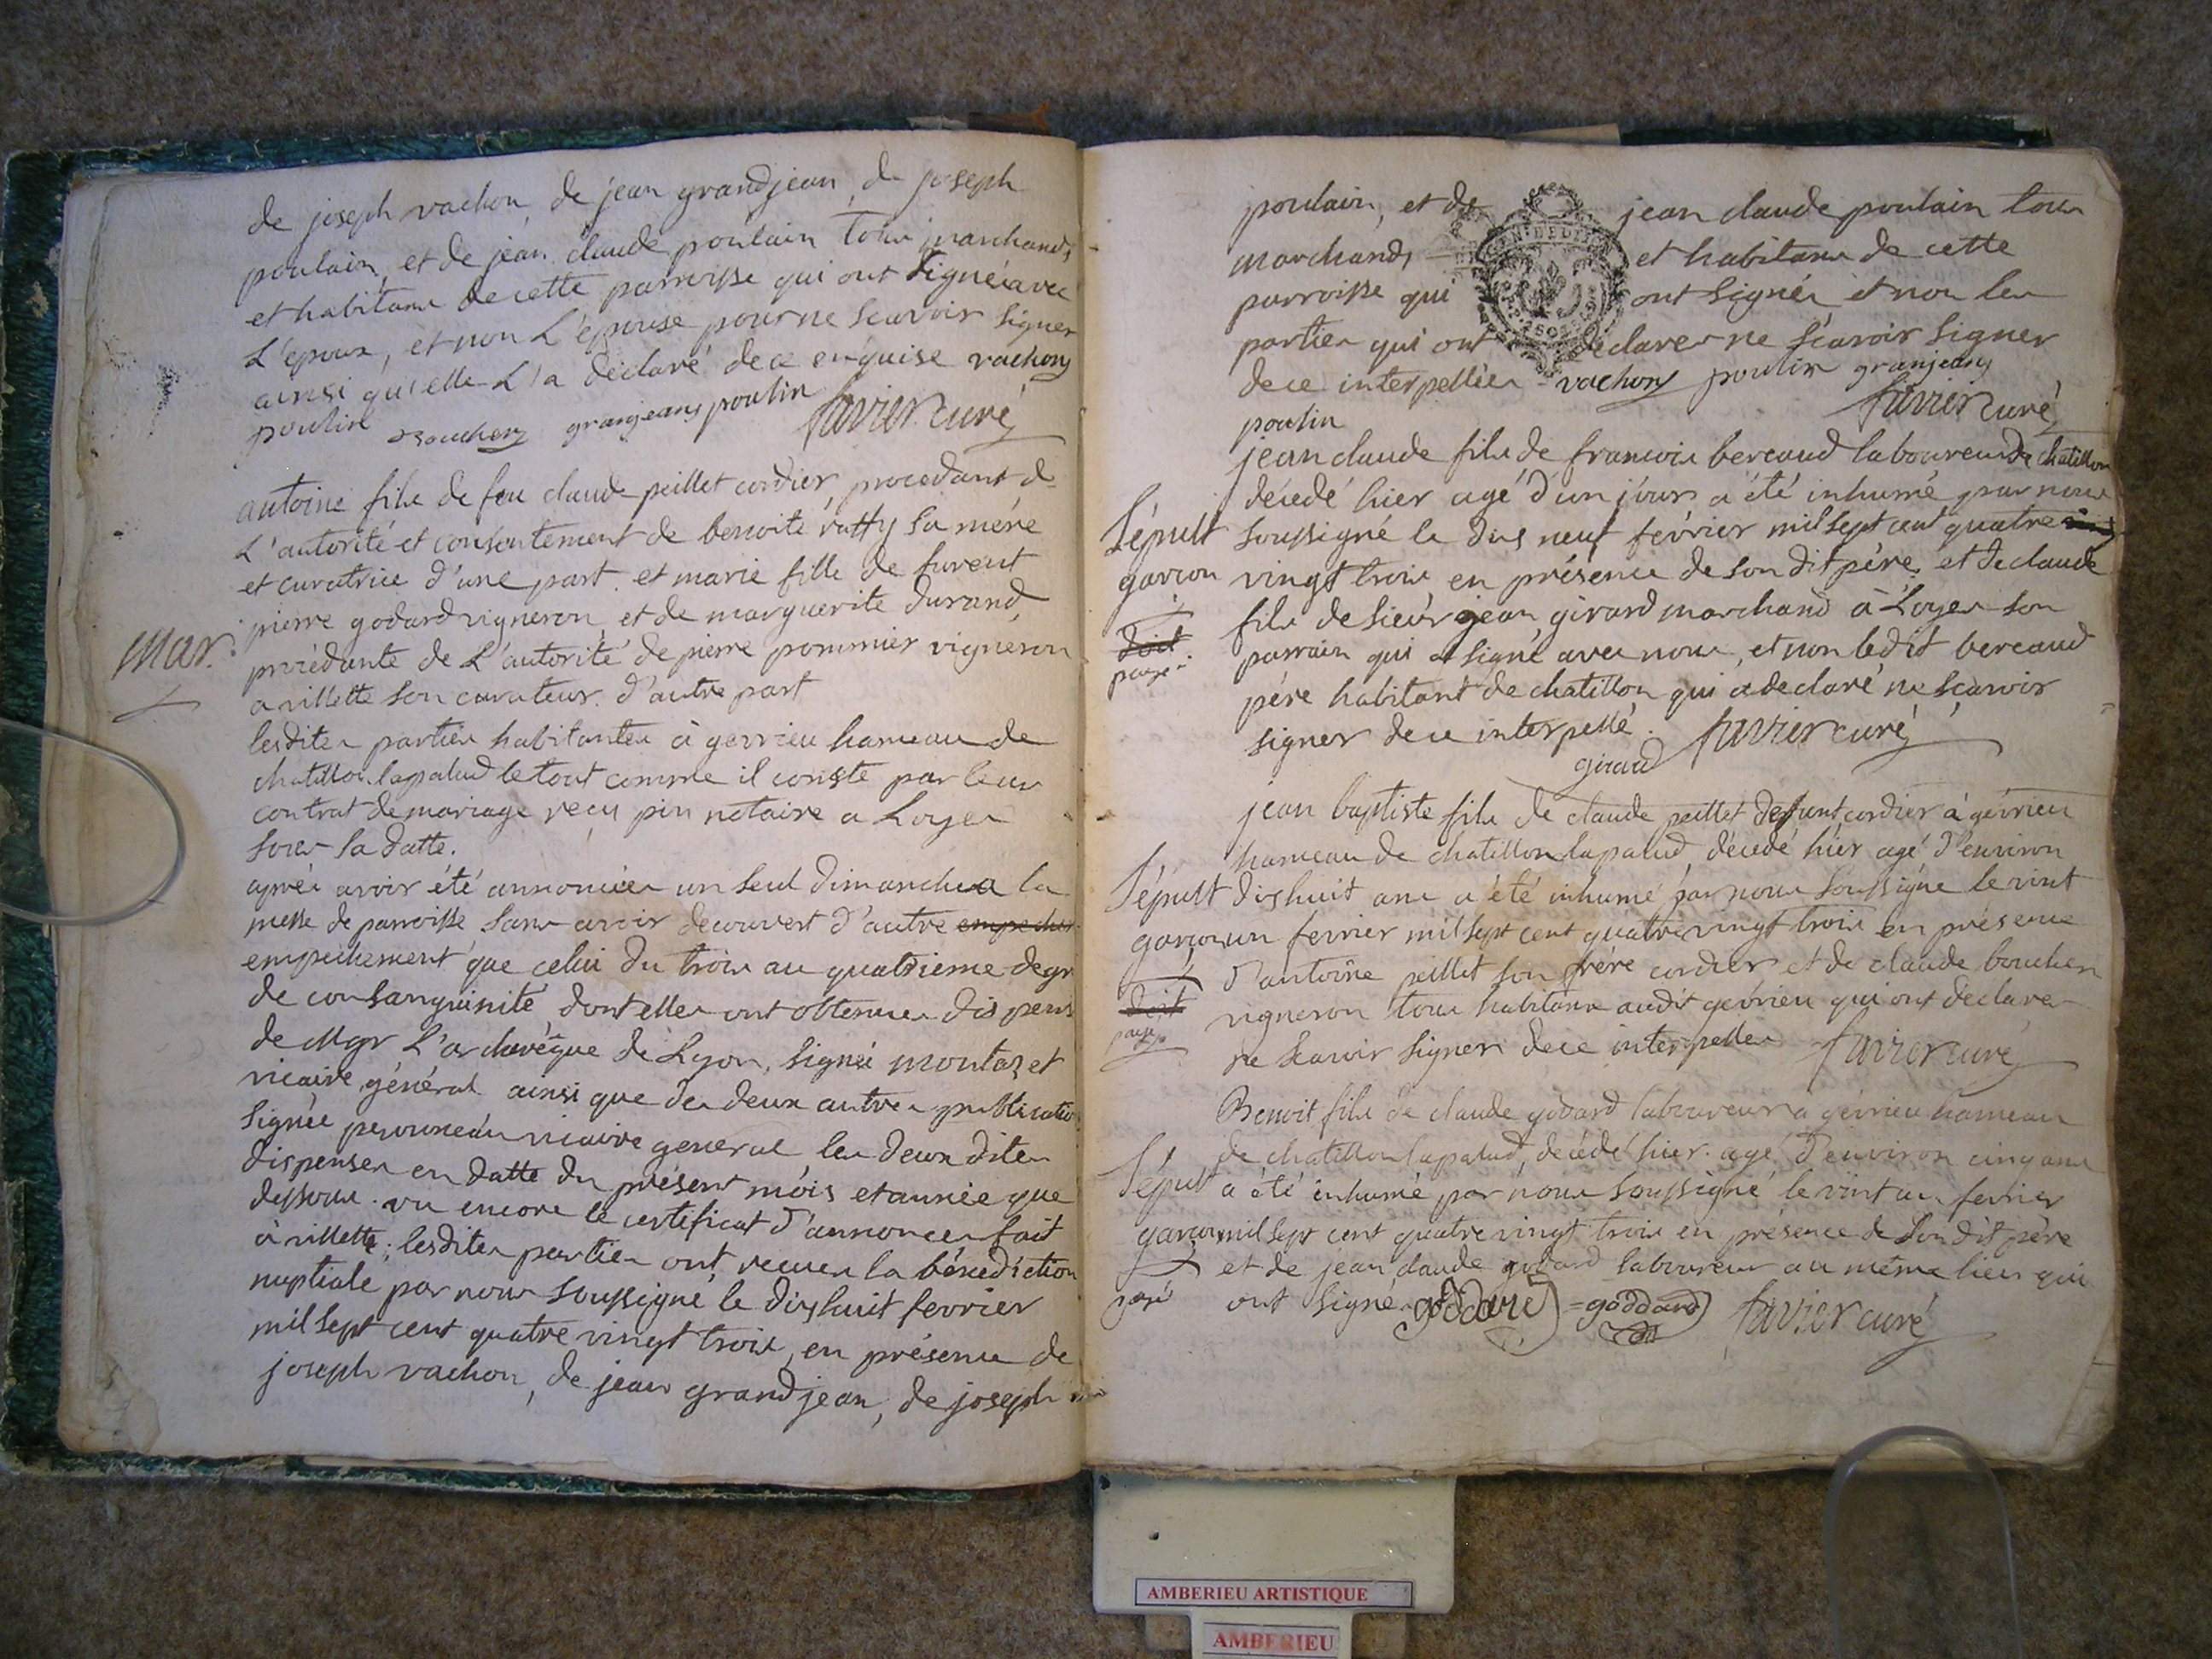 de joseph vachon, de jean grandjean, de joseph
poulain, et de jean claude poulain tous marchands
et habitans de cette parroisse qui ont signés avec
L'epoux, et non L'epouse pour ne scavoir signer
ainsi qu'elle L'a déclaré de ce enquise vachon
poulin grangean poulin
favier curé
Mar.
antoine fils de feu claude peillet cordier, procedant de
L'autorité et consentement de benoite ratty sa mére
et curatrice d'une part. et marie fille de furent
pierre godard vigneron, et de marguerite durand
procédante de L'autorité de pierre pommier vigneron
a villette son curateur. d'autre part
lesdites parties habitantes à gevrieu hameau de
chatillon lapalud le tout comme il conste par leur
contrat de mariage reçu pin notaire a Loyes
sous sa datte.
aprés avoir été annoncées un seul dimanche a la
messe de parroisse sans avoir decouvert d'autre empeche
empêchement que celui du trois au quatrieme degr
de consanguinité dont elles ont obtenues dispens
de Mgr L'archevêque de Lyon, signé montazet
vicaire général ainsi que des deux autres publicatio
signée vicaire general les deux dites
dispenses en datte du présent mois et année que
dessous. vu encore le certificat d'annonces fait
à villette; lesdites parties ont recues la bénédiction
nuptiale par nous soussigné le dixhuit fevrier
mil sept cent quatre vingt trois, en présence de
joseph vachon, de jean grandjean, de joseph
poulain, et de jean claude poulain tous
marchands et habitans de cette
parroisse qui ont signés et non les
parties qui ont declarer ne scavoir signer
de ce interpellées vachon poulin granjean
poulin favier curé
jean claude fils de francois bereaud laboureur de chatillon
décedé hier agé d'un jour a été inhumé par nous
Sépult soussigné le dix neuf février mil sept cent quatre
garcon vingt trois en présence de son dit père, et de claude
fils de sieur jean girard marchand à Loyes son
doit parrain qui a signé avec nous, et non ledit bereaud
payé père habitant de chatillon qui a declaré ne scavoir
signer de ce interpellé. favier curé
giraud
jean baptiste fils de claude peillet defunt cordier à gévrieu
hameau de chatillon lapalud, décedé hier agé d'environ
Sépult dixhuit ans a été inhumé par nous soussigné le vint
garcon un fevrier mil sept cent quatre vingt trois en présence
d'antoine peillet son frére cordier et de claude boucher
doit vigneron tous habitans audit gevrieu qui ont déclarer
payé ne scavoir signer de ce interpellés favier curé
Benoit fils de claude godard laboureur a gévrieu hameau
de chatillon lapalud, decédé hier. agé d'environ cinq ans
Sépult a été inhumé par nous soussigné le vint un fevrier
garcon mil sept cent quatre vingt trois en présence de son dit père
et de jean claude godard laboureur au même lieu qui
payé ont signé. goddard goddard favier curé
AMBERIEU ARTISTIQUE
AMBERIEU